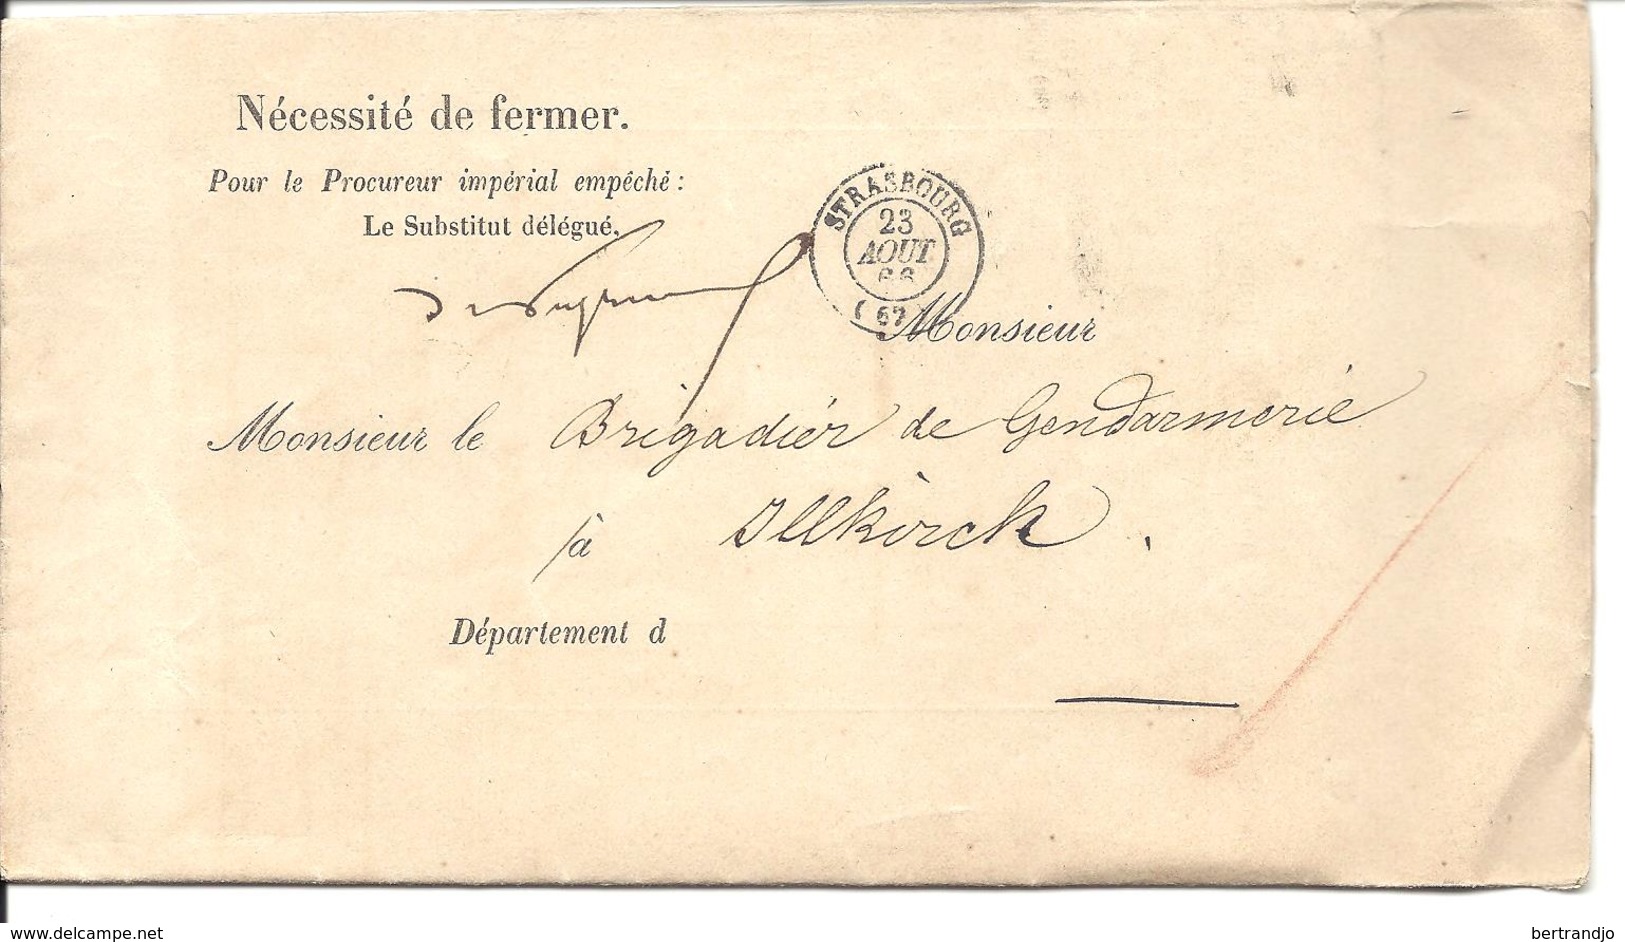 Nécessité de fermer.
Pour le Procureur impérial empêché :
Le Substitut délégué,
STRASBOURG
23
AOUT
66
( 67 )
Monsieur
Monsieur le Brigadier de Gendarmerie
à Illkirch .
Département d
www.delcampe.net
bertrandjo